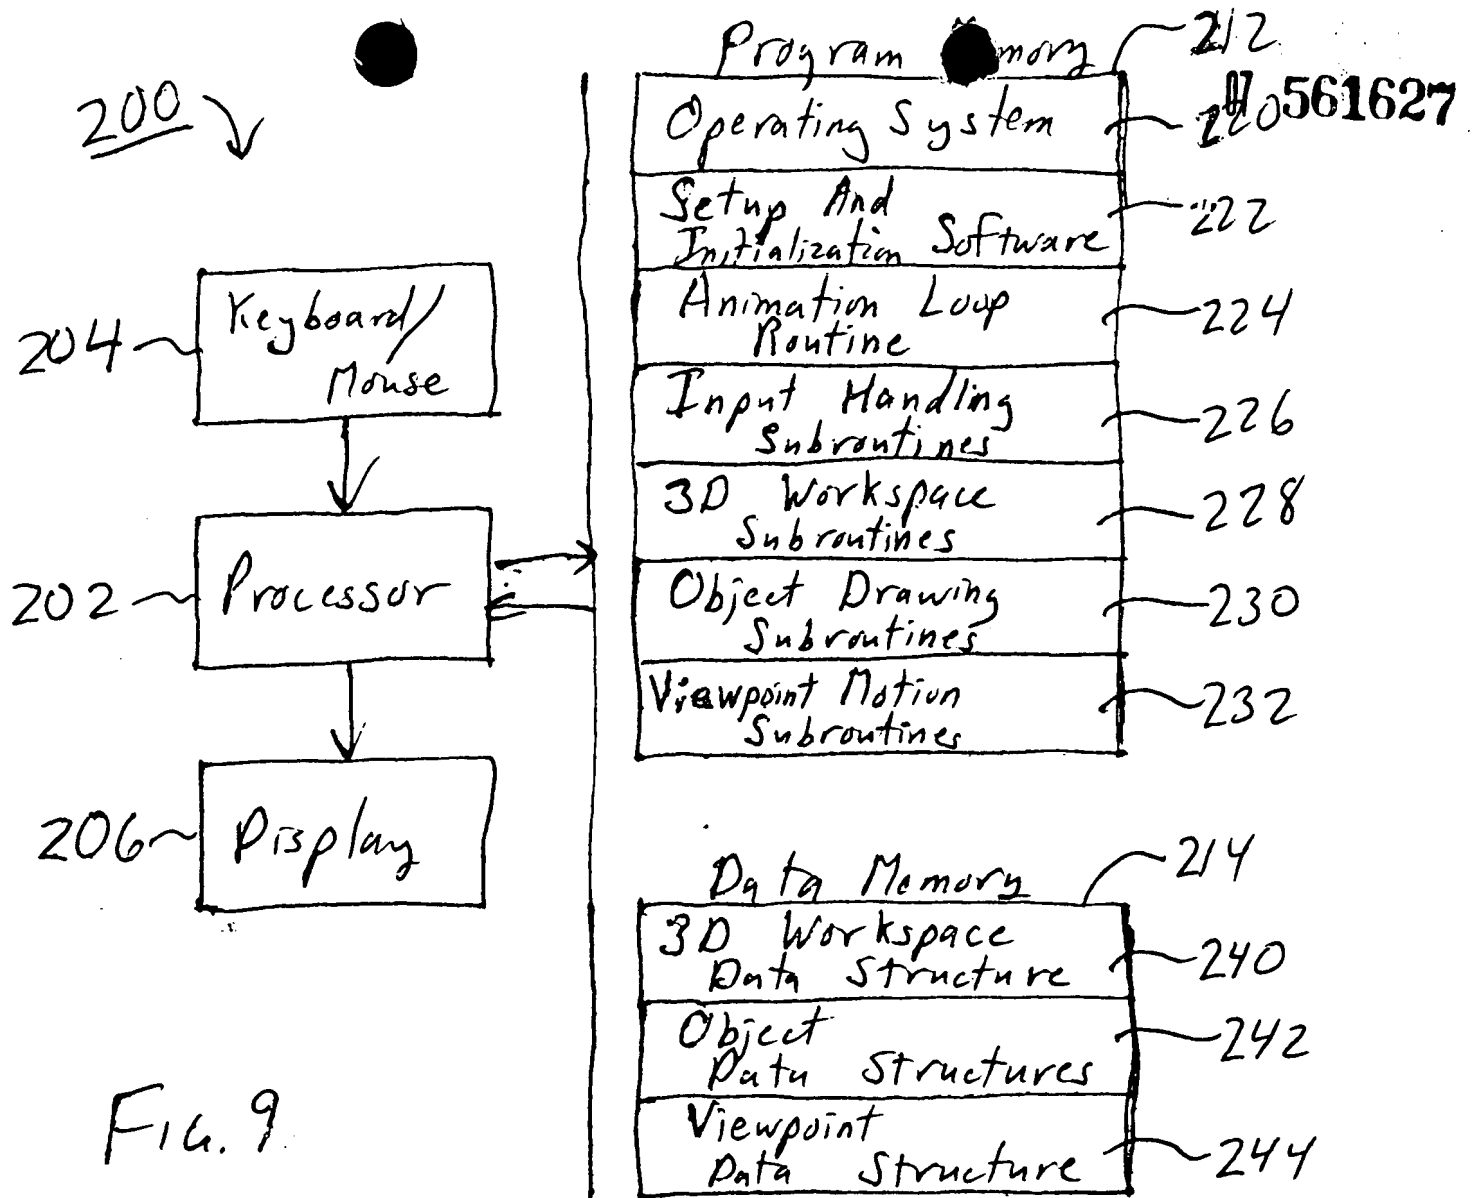 200
Keyboard/
Mouse
204
Processor
202
Display
206
Program mory
212
Operating System
220
07 561627
Setup And
Initialization Software
222
Animation Loop
Routine
224
Input Handling
Subroutines
226
3D Workspace
Subroutines
228
Object Drawing
Subroutines
230
Viewpoint Motion
Subroutines
232
Data Memory
214
3D Workspace
Data Structure
240
Object
Data Structures
242
Viewpoint
Data Structure
244
FIG. 9